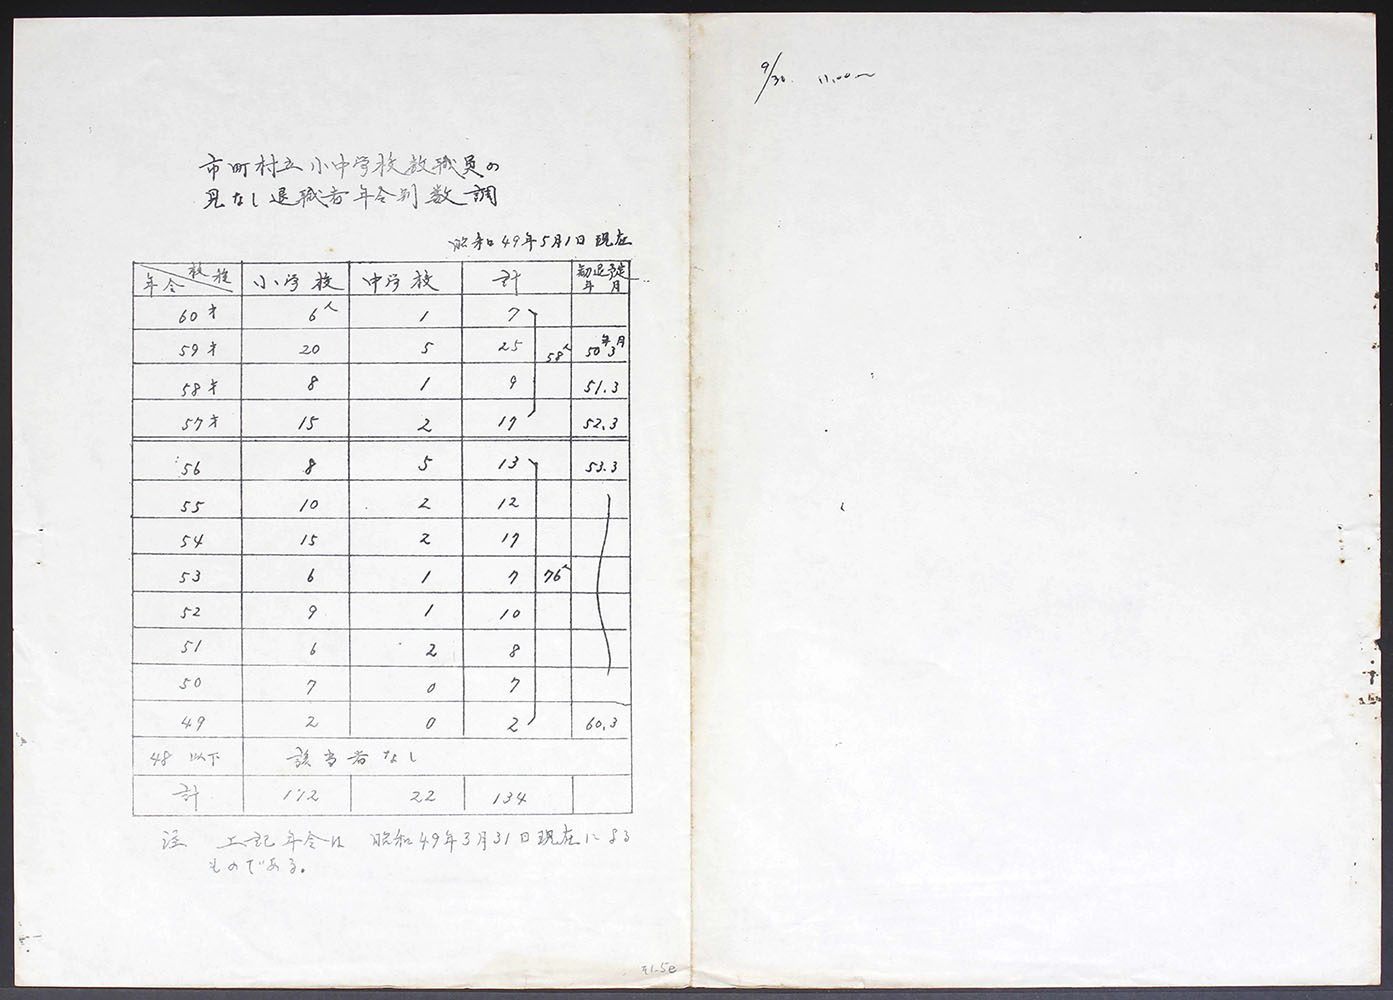 市町村立小中学校教職員の
見なし退職者年令別数調
昭和49年5月1日現在
校種 年令 小学校 中学校 計 勧退予定年月
60才 6人 1 7
59才 20 5 25 58人 50年3月
58才 8 1 9 51.3
57才 15 2 17 52.3
56 8 5 13 53.3
55 10 2 12
54 15 2 17
53 6 1 7 76人
52 9 1 10
51 6 2 8
50 7 0 7
49 2 0 2 60.3
48 以下 該当者なし
計 112 22 134
注 上記年令は 昭和49年3月31日現在による
ものである。
9/30. 11.00〜